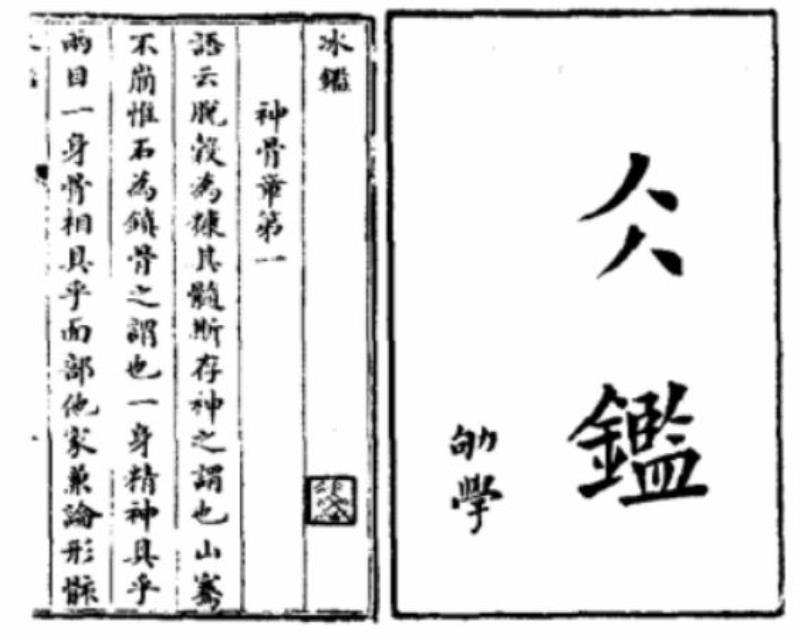 仌鑑
學
冰鑑
神骨章第一
語云脫穀為糠其髓斯存神之謂也山騫
不崩惟石為鎮骨之謂也一身精神具乎
兩目一身骨相具乎面部他家兼論形骸